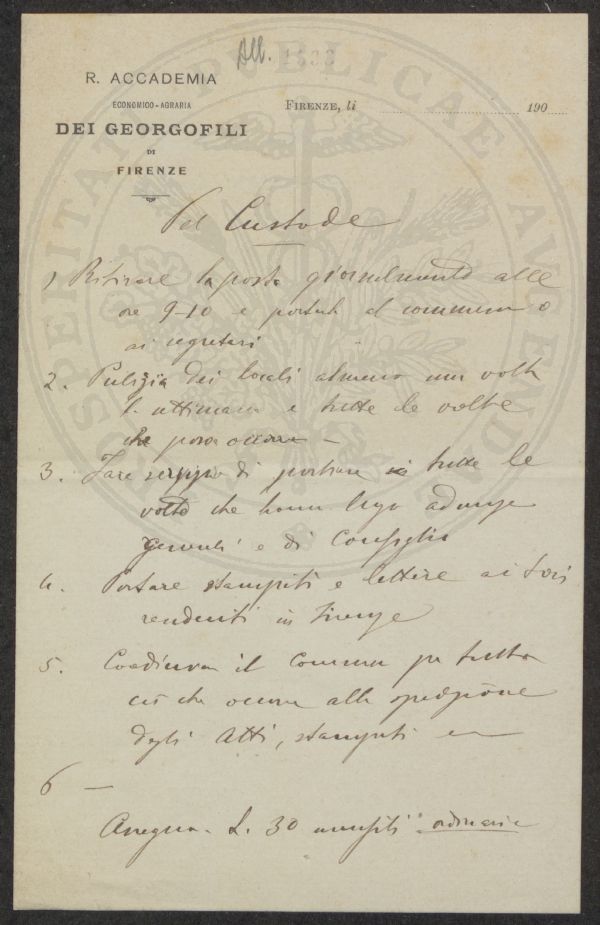 All. 1533
R. ACCADEMIA
ECONOMICO-AGRARIA
DEI GEORGOFILI
DI
FIRENZE
FIRENZE, li 190
Pel Custode
1 Ritirare la posta giornalmente alle
ore 9-10 e portarla al commesso o
ai segretari
2. Pulizia dei locali almeno una volta
la settimana e tutte le volte
che possa occorrere –
3. Fare servizio di portiere in tutte le
volte che hanno luogo adunanze
generali e di Consiglio
4. Portare stampati e lettere ai Soci
residenti in Firenze
5. Coadiuvare il Commesso per tutto
ciò che occorre alla spedizione
degli Atti, stampati
6 –
Assegno L. 30 mensili ordinarie
PROSPERITATI PUBLICAE AUGENDAE